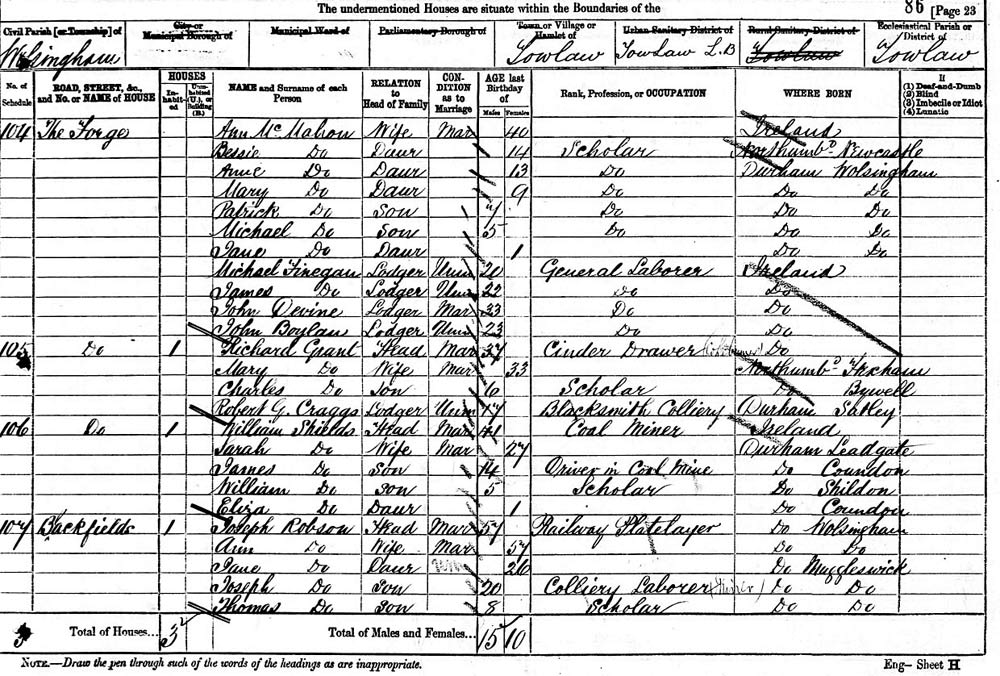 The undermentioned Houses are situate within the Boundaries of the 86 [Page 23
Civil Parish [or Township] of City or Municipal Borough of Municipal Ward of Parliamentary Borough of Town or Village or Hamlet of Urban Sanitary District of Rural Sanitary District of Ecclesiastical Parish or District of
Wolsingham Towlaw Towlaw L.B Towlaw Towlaw
No. of Schedule ROAD, STREET, &c., and No. or NAME of HOUSE HOUSES Inhabited Uninhabited (U.), or Building (B.) NAME and Surname of each Person RELATION to Head of Family CONDITION as to Marriage AGE last Birthday of Males Females Rank, Profession, or OCCUPATION WHERE BORN If (1) Deaf-and-Dumb (2) Blind (3) Imbecile or Idiot (4) Lunatic
104 The Forge Ann McMahon Wife Mar 40 Ireland
Bessie Do Daur 14 Scholar Northumbd Newcastle
Anne Do Daur 13 Do Durham Wolsingham
Mary Do Daur 9 Do Do Do
Patrick Do Son 7 Do Do Do
Michael Do Son 5 Do Do Do
Jane Do Daur 1 Do Do
Michael Finegan Lodger Unm 20 General Laborer Ireland
James Do Lodger Unm 22 Do Do
John Devine Lodger Mar 23 Do Do
John Boylan Lodger Unm 23 Do Do
105 Do 1 Richard Grant Head Mar 37 Cinder Drawer Do
Mary Do Wife Mar 33 Northumbd
Charles Do Son 6 Scholar Do Bywell
Robert G. Craggs Lodger Unm 17 Blacksmith Colliery Durham Satley
106 Do 1 William Shields Head Mar 41 Coal Miner Ireland
Sarah Do Wife Mar 27 Durham Leadgate
James Do Son 14 Driver in Coal Mine Do Coundon
William Do Son 5 Scholar Do Shildon
Eliza Do Daur 1 Do Coundon
107 Backfields 1 Joseph Robson Head Mar 57 Railway Platelayer Do Wolsingham
Ann Do Wife Mar 57 Do Do
Jane Do Daur Unm 26 Do Muggleswick
Joseph Do Son 20 Colliery Laborer Do Do
Thomas Do Son 8 Scholar Do Do
3 Total of Houses... 3 Total of Males and Females... 15 10
NOTE.—Draw the pen through such of the words of the headings as are inappropriate. Eng— Sheet H